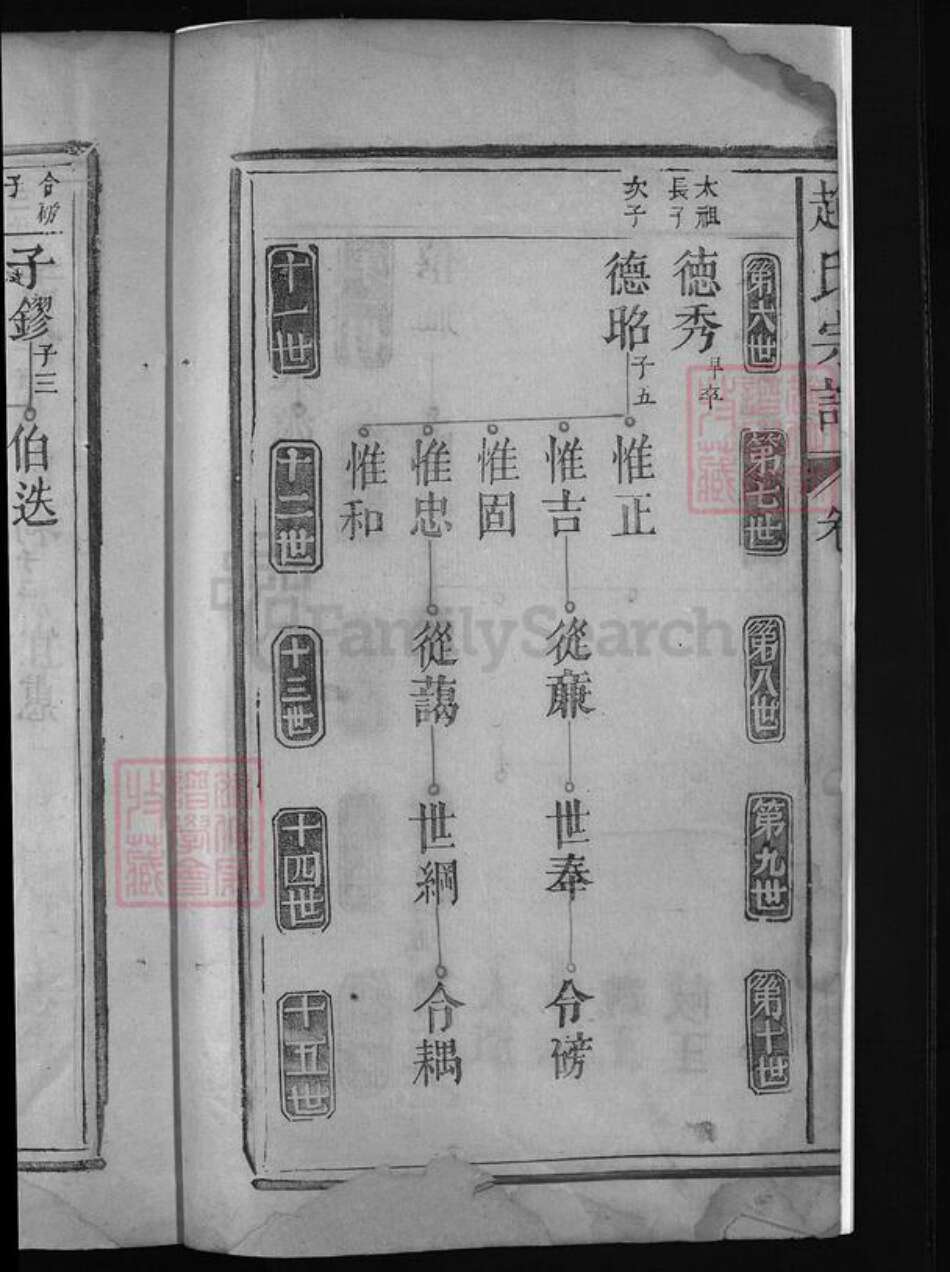 趙氏宗譜 卷
第六世
第七世
第八世
第九世
第十世
太祖
長子
德秀
早卒
次子
德昭
子五
惟正
惟吉
從
世奉
令
惟固
惟忠
從藹
世綱
令耦
惟和
十一世
十二世
十三世
十四世
十五世
子
子鏐
子三
伯迭
FamilySearch